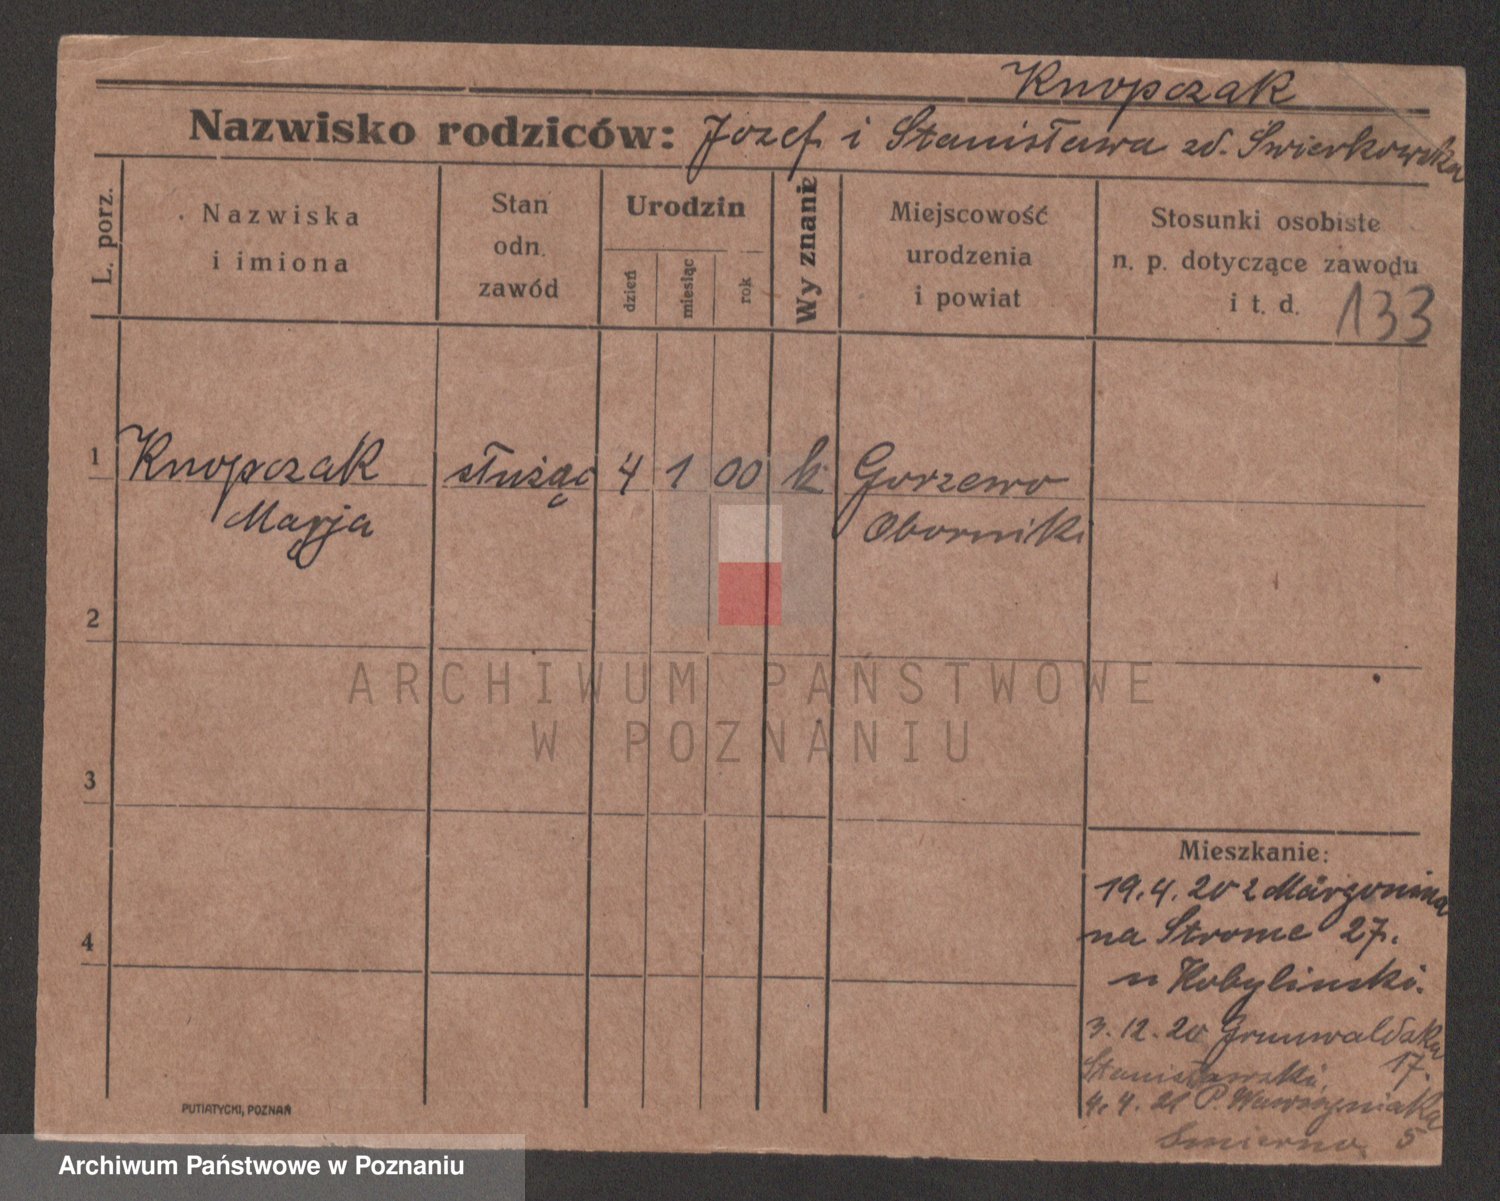 Knopczak
Nazwisko rodziców: Józef i Stanisława zd. Świerkowska
L. porz.
Nazwiska
i imiona
Stan
odn.
zawód
Urodzin
dzień
miesiąc
rok
Wyznanie
Miejscowość
urodzenia
i powiat
Stosunki osobiste
n. p. dotyczące zawodu
i t. d.
133
1 Knopczak służąc 4 1 00 k Gorzewo
Marja Oborniki
2
ARCHIWUM PAŃSTWOWE
W POZNANIU
3
Mieszkanie:
19.4.20 z Margonina
4
na Strome 27.
u Kobyliński.
3.12.20 Grunwaldzka
17.
Stanisławski,
4.4.21 P. Wawrzyniaka
5
PUTIATYCKI, POZNAŃ
Archiwum Państwowe w Poznaniu